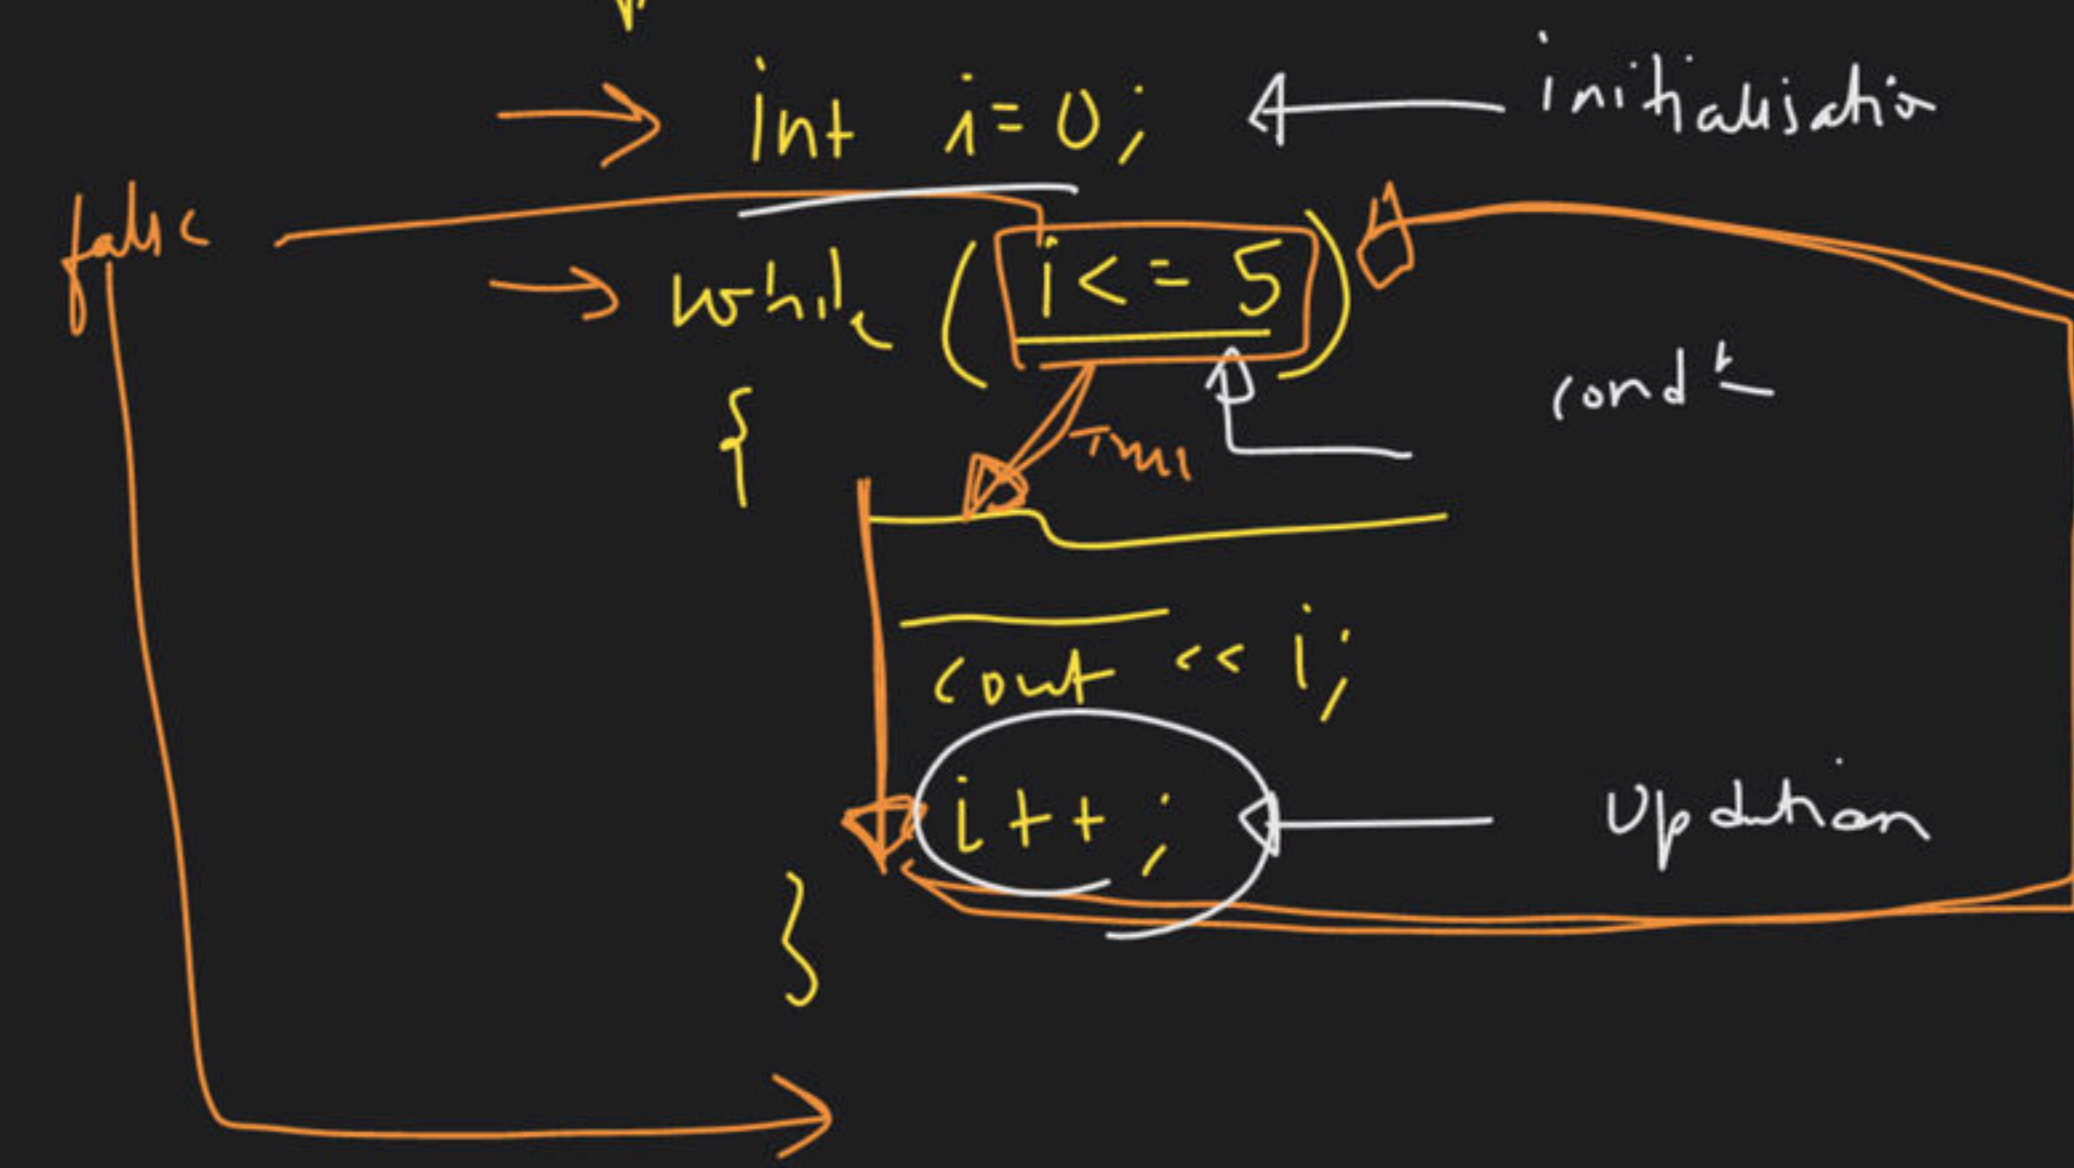 int i=0; initialisation
false
while (i<=5)
condn
{
True
cout << i;
i++; Updation
}